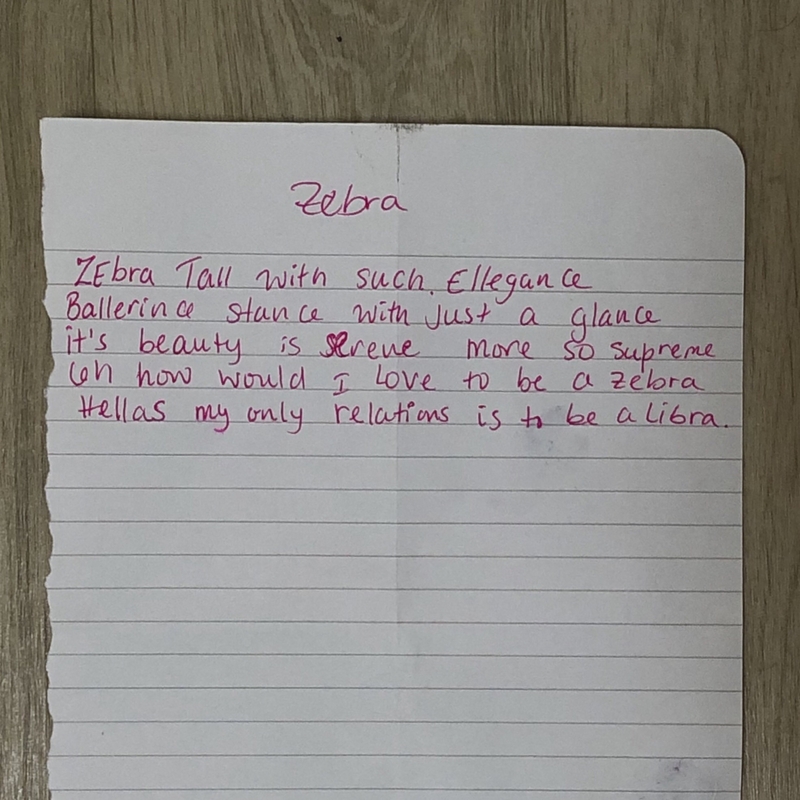 Zebra
ZEbra Tall with such. Ellegance
Ballerince stance with just a glance
it's beauty is serene more so supreme
Oh how would I Love to be a zebra
Hellas my only relations is to be a libra.